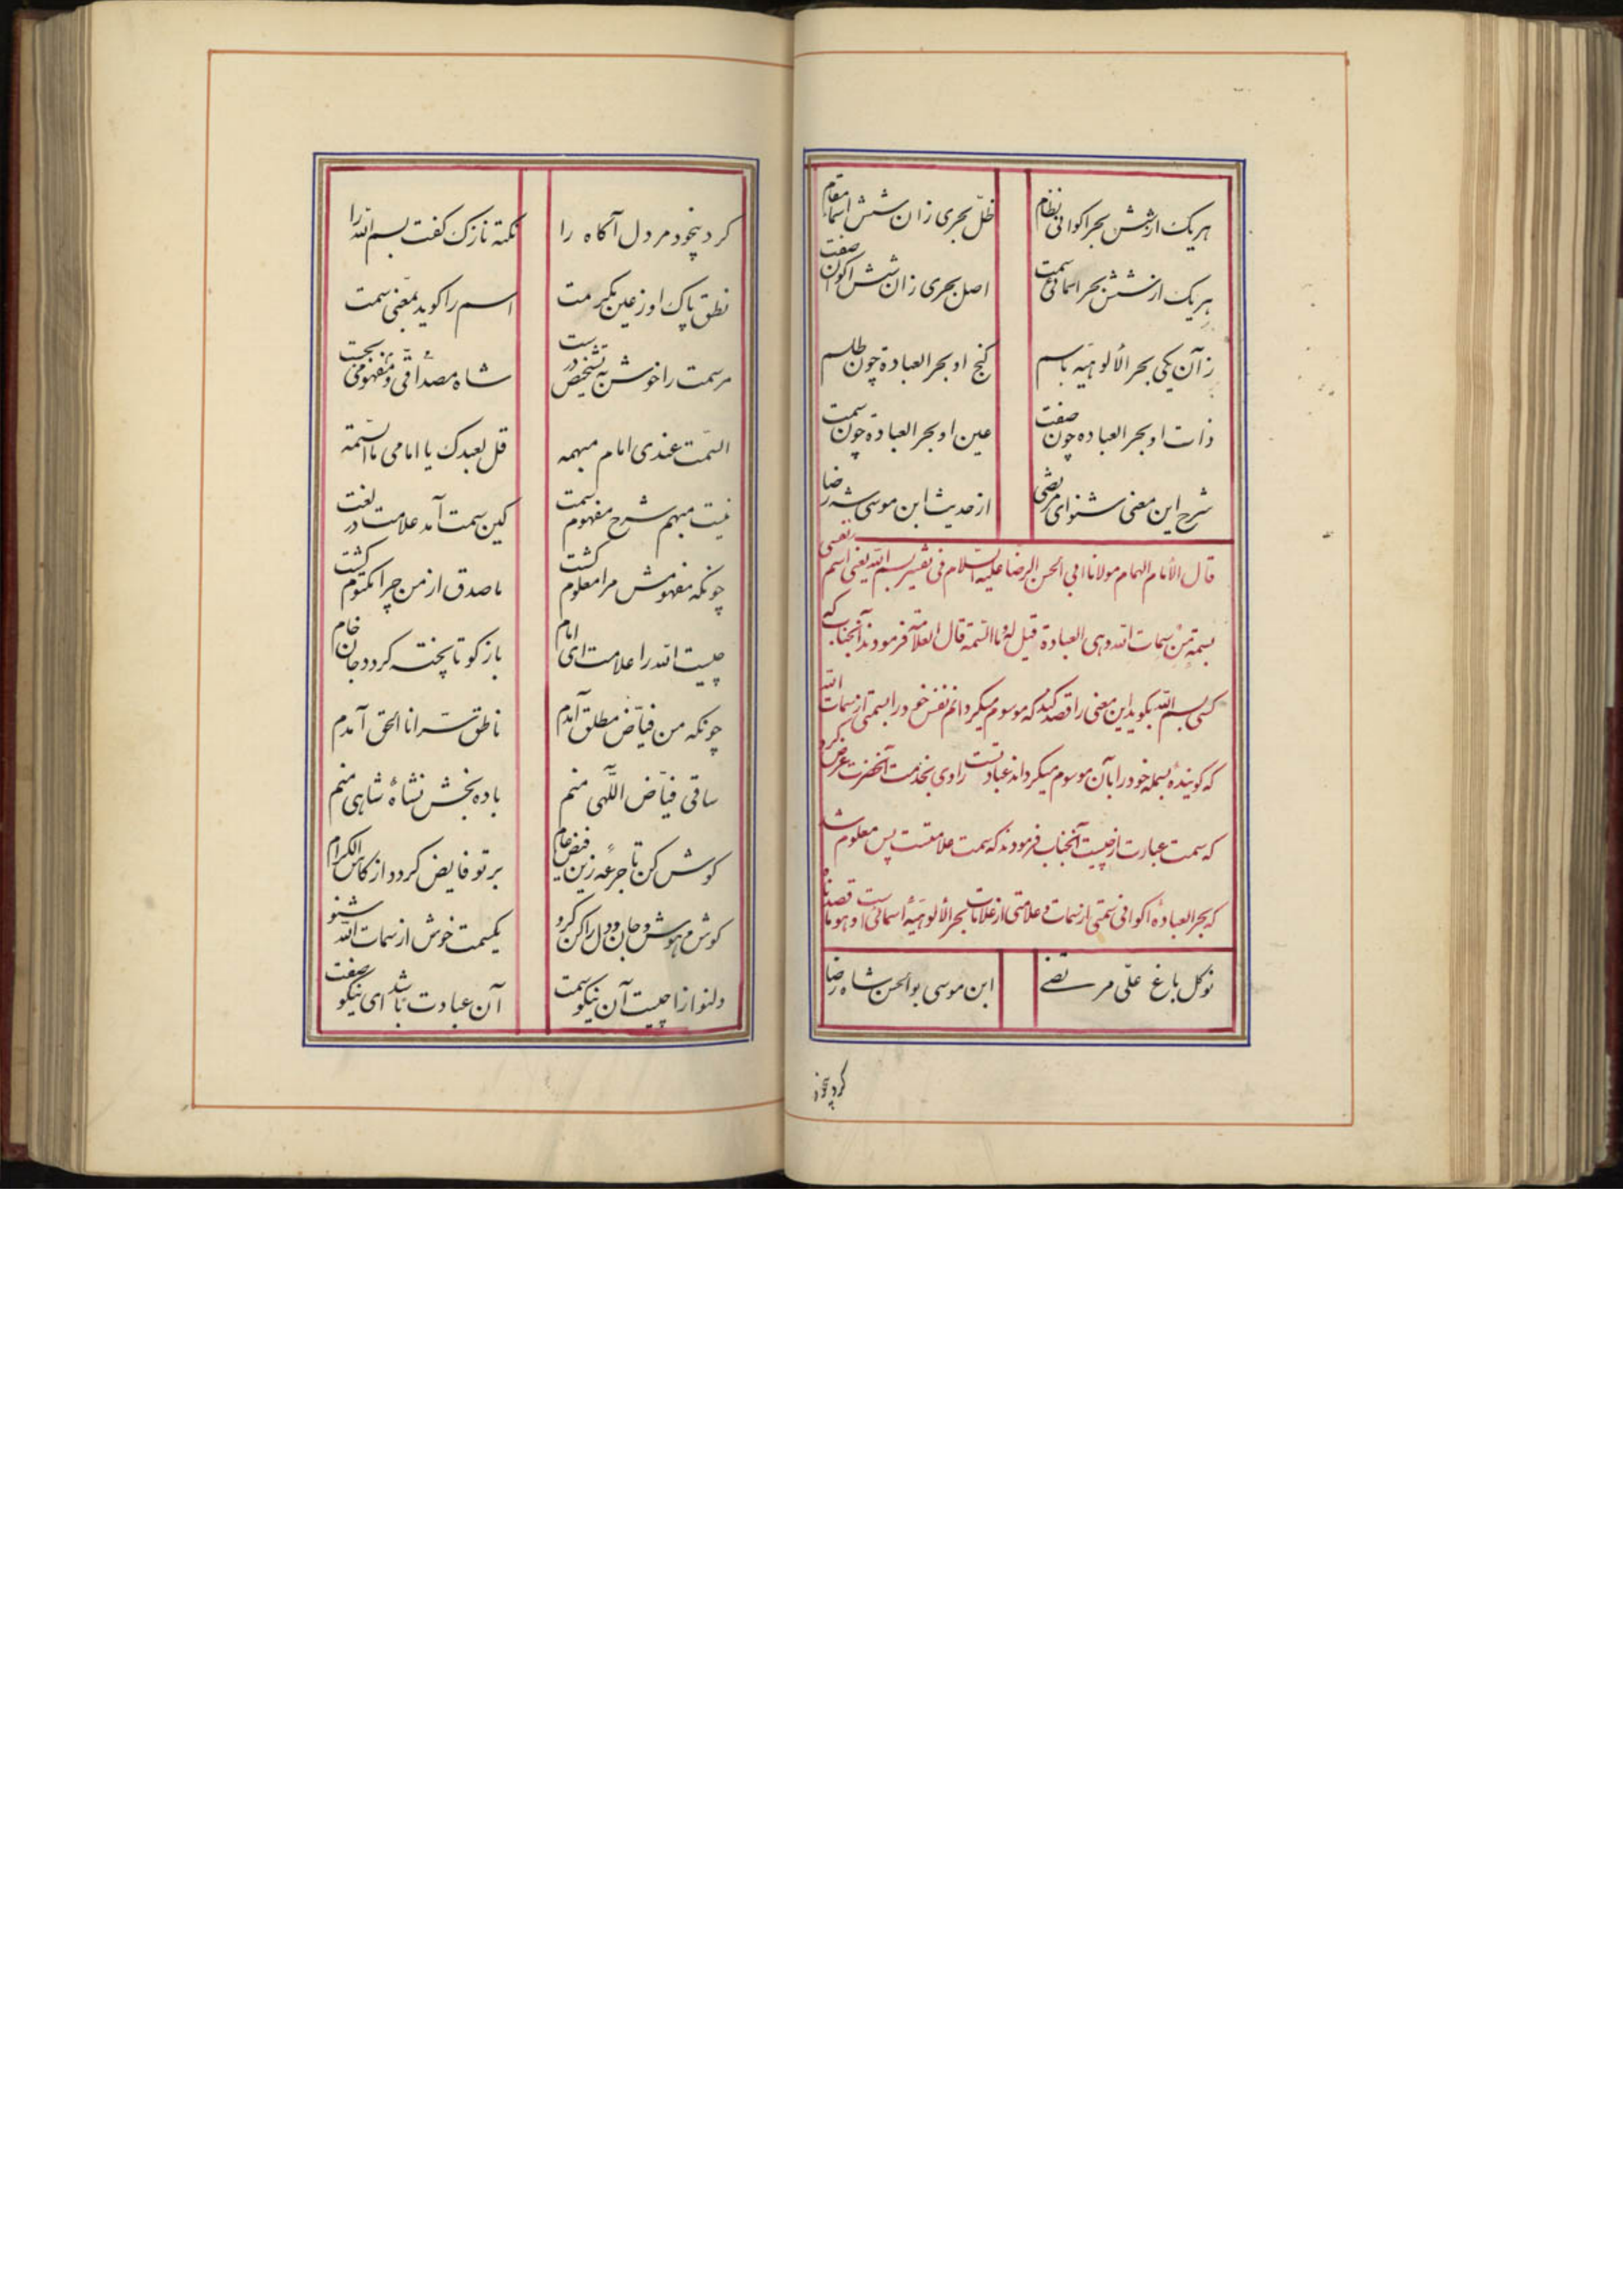 هریک از شش بحر اکوانی نظام
ظلّ بحری زان شش اسما مقام
هریک از شش بحر اسمائی سمت
اصل بحری زان شش اکوان صفت
زآن یکی بحر الألوهیّه باسم
گنج او بحر العباده چون طلسم
ذات او بحر العباده چون صفت
عین او بحر العباده چون سمت
شرح این معنی شنو ای مرتضی
از حدیث ابن موسی شه رضا
قال الأمام الهمام مولانا ابی الحسن الرضا علیه السّلام فی تفسیر بسم الله یعنی اسم نفسی
بسمة من سمات الله وهی العبادة قیل له ما السّمة قال العلامة فرمودند آنجناب که
کسی بسم الله بکوید این معنی را قصد کند که موسوم میکردانم نفس خود را بسمتی از سمات الله
که کوینده بسمله خود را بآن موسوم میکرداند عبادتست راوی بخدمت آنحضرت عرض کرد
که سمت عبارت از چیست آنجناب فرمودند که سمت علامتست پس معلوم شد
که بحر العبادهٔ اکوانی سمتی از سمات و علامتی از علامات بحر الألوهیّهٔ اسمائی است
نوکل باغ علّی مرتضی
ابن موسی بوالحسن شاه رضا
کرد بیخود
کرد بیخود مرد دل آکاه را
نکته نازک کفت بسم الله را
نطق پاک او ز عین مکرمت
اسم را کوید بمعنی سمت
مر سمت را خوش به تشخیص درست
شاه مصداقی و مفهومی بجست
السّمت عندی امام مبهمه
قل لعبدک یا امامی ما السّمة
نیست مبهم شرح مفهوم سمت
کین سمت آمد علامت در لغت
چونکه مفهومش مرا معلوم کشت
ماصدق از من چرا مکتوم کشت
چیست الله را علامت ای امام
باز کو تا پخته کردد جان خام
چونکه من فیّاض مطلق آمدم
ناطق سرّ انا الحق آمدم
ساقی فیّاض اللّهی منم
باده بخش نشاهٔ شاهی منم
کوش کن تا جرعهٔ زین فیض عام
بر تو فایض کردد از کاس الکرام
کوش هوش و جان و دل را کن کرو
یکسمت خوش از سمات الله شنو
دلنوازا چیست آن نیکو سمت
آن عبادت باشد ای نیکو صفت